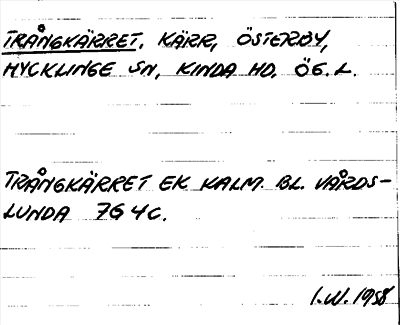 TRÅNGKÄRRET, KÄRR, ÖSTERBY,
HYCKLINGE SN, KINDA HD, ÖG. L.
TRÅNGKÄRRET EK KALM. BL. VÅRDS-
LUNDA 7G 4C.
I.W. 1958